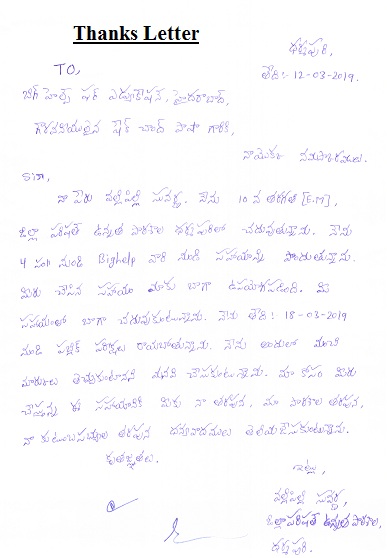 Thanks Letter
ధర్మపురి,
TO,
తేది:- 12-03-2019.
బిగ్ హెల్ప్ ఫర్ ఎడ్యుకేషన్, హైదరాబాద్,
గౌరవనీయులైన షేక్ చాంద్ పాషా గారికి
నాయొక్క నమస్కారములు.
Sir,
నా పేరు సువర్ణ. నేను 10 వ తరగతి [E.M],
జిల్లా పరిషత్ ఉన్నత పాఠశాల ధర్మపురిలో చదువుతున్నాను. నేను
4 నుండి Bighelp వారి నుండి సహాయాన్ని పొందుతున్నాను.
మీరు చేసిన సహాయం మాకు బాగా ఉపయోగపడింది. మీ
సహాయంతో బాగా చదువుకుంటున్నాను. నేను తేది:- 18-03-2019
నుండి పబ్లిక్ పరీక్షలు రాయబోతున్నాను. నేను అందులో మంచి
మార్కులు తెచ్చుకుంటానని మనవి చేసుకుంటున్నాను. మా కోసం మీరు
చేస్తున్న ఈ సహాయానికి మీకు నా తరపున, మా పాఠశాల తరపున,
నా కుటుంబసభ్యుల తరపున ధన్యవాదములు తెలియజేసుకుంటున్నాను.
కృతజ్ఞతలు.
ఇట్లు,
సువర్ణ,
జిల్లా పరిషత్ ఉన్నత పాఠశాల,
ధర్మపురి.